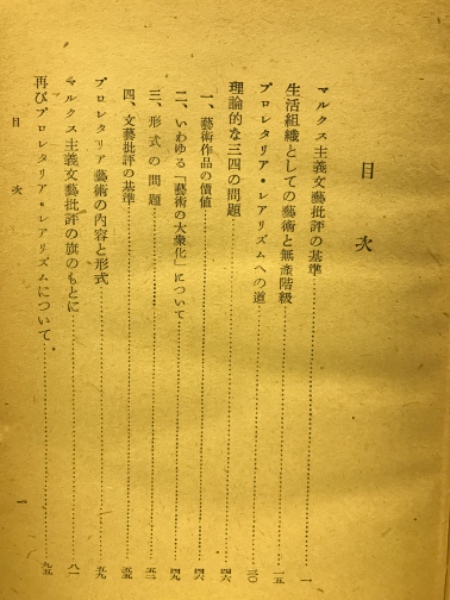 目次
マルクス主義文藝批評の基準……一
生活組織としての藝術と無産階級……一五
プロレタリア・レアリズムへの道……三〇
理論的な三四の問題……四六
一、藝術作品の價値……四六
二、いわゆる「藝術の大衆化」について……四九
三、形式の問題……五二
四、文藝批評の基準……五五
プロレタリア藝術の内容と形式……五九
マルクス主義文藝批評の旗のもとに……八一
再びプロレタリア・レアリズムについて……九五
目次
一